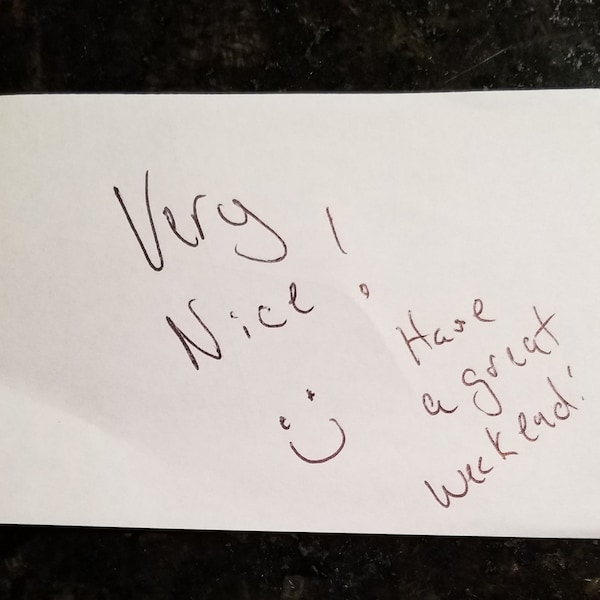 Very
Nice!
Have
a great
weekend!